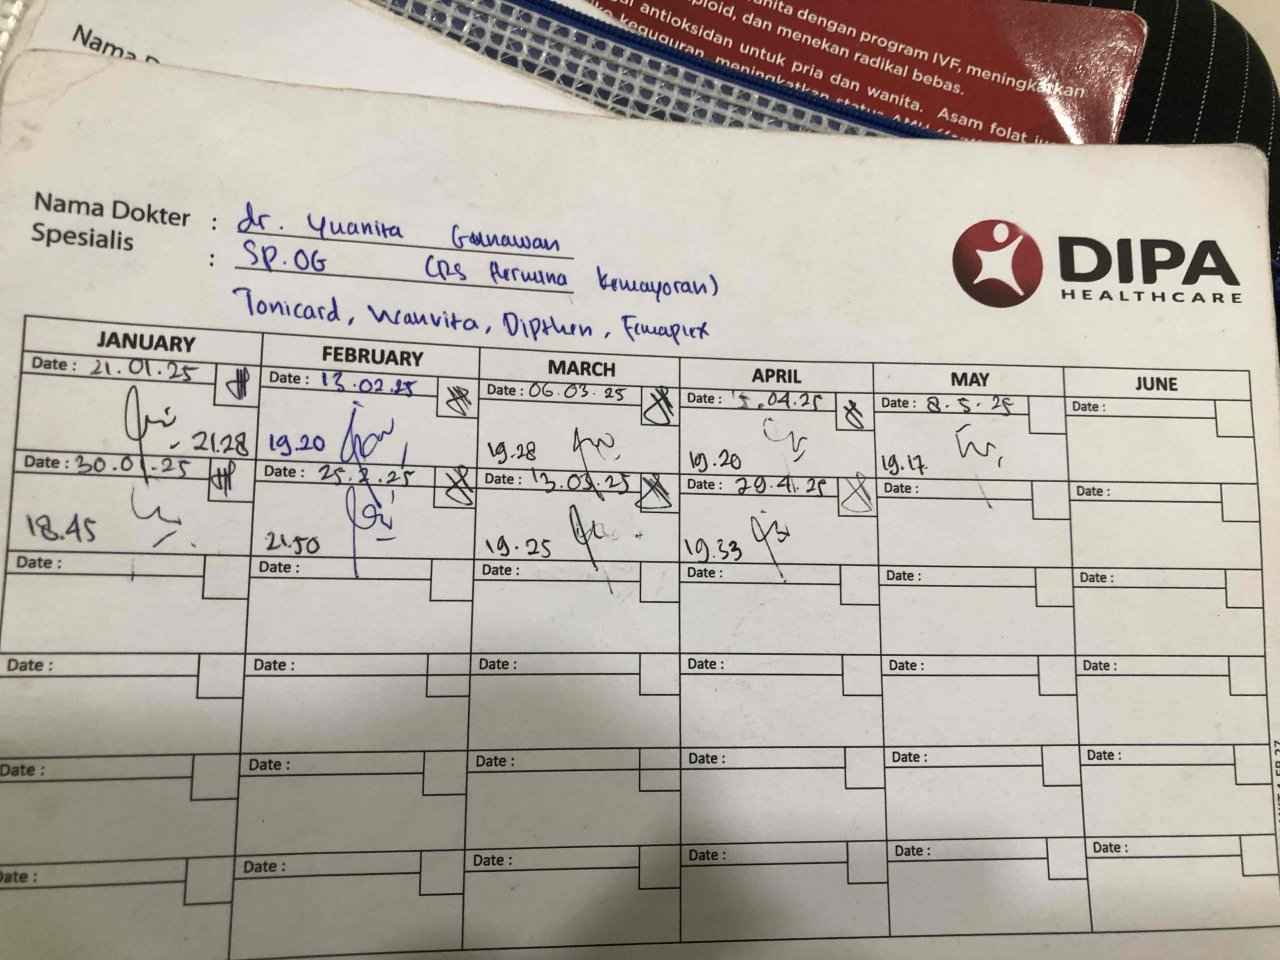 nita dengan program IVF, meningkatkan
ploid, dan menekan radikal bebas.
antioksidan untuk pria dan wanita. Asam folat
keguguran, meningkatkan status
Nama
Nama Dokter : dr. Yuanita Gunawan
Spesialis : SP.OG (RS Permana Kemayoran)
Tonicard, Wanvita, Dipthen, Femaplex
DIPA
HEALTHCARE
JANUARY FEBRUARY MARCH APRIL MAY JUNE
Date : 21.01.25 Date : 13.02.25 Date : 06.03.25 Date : .04.25 Date : 8.5.25 Date :
21.28 19.20 19.28 19.20 19.17
Date : 30.01.25 Date : 25.2.25 Date : 13.03.25 Date : 29.4.25 Date : Date :
18.45 21.50 19.25 19.33
Date : Date : Date : Date : Date : Date :
Date : Date : Date : Date : Date : Date :
Date : Date : Date : Date : Date : Date :
Date : Date : Date : Date : Date : Date :